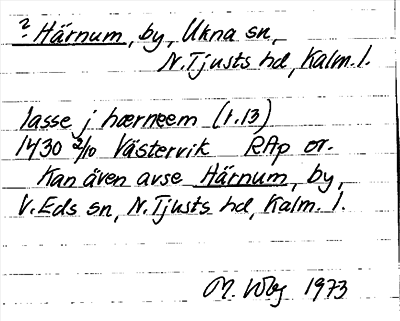 ? Härnum, by, Ukna sn,
N. Tjusts hd, Kalm. l.
lasse j hærneem (r.13)
1430 2/10 Västervik RAp or.
Kan även avse Härnum, by,
V. Eds sn, N. Tjusts hd, Kalm. l.
M. 1973